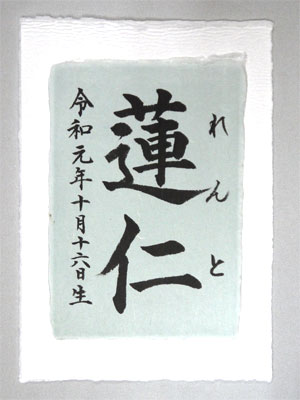 れんと
蓮仁
令和元年十月十六日生